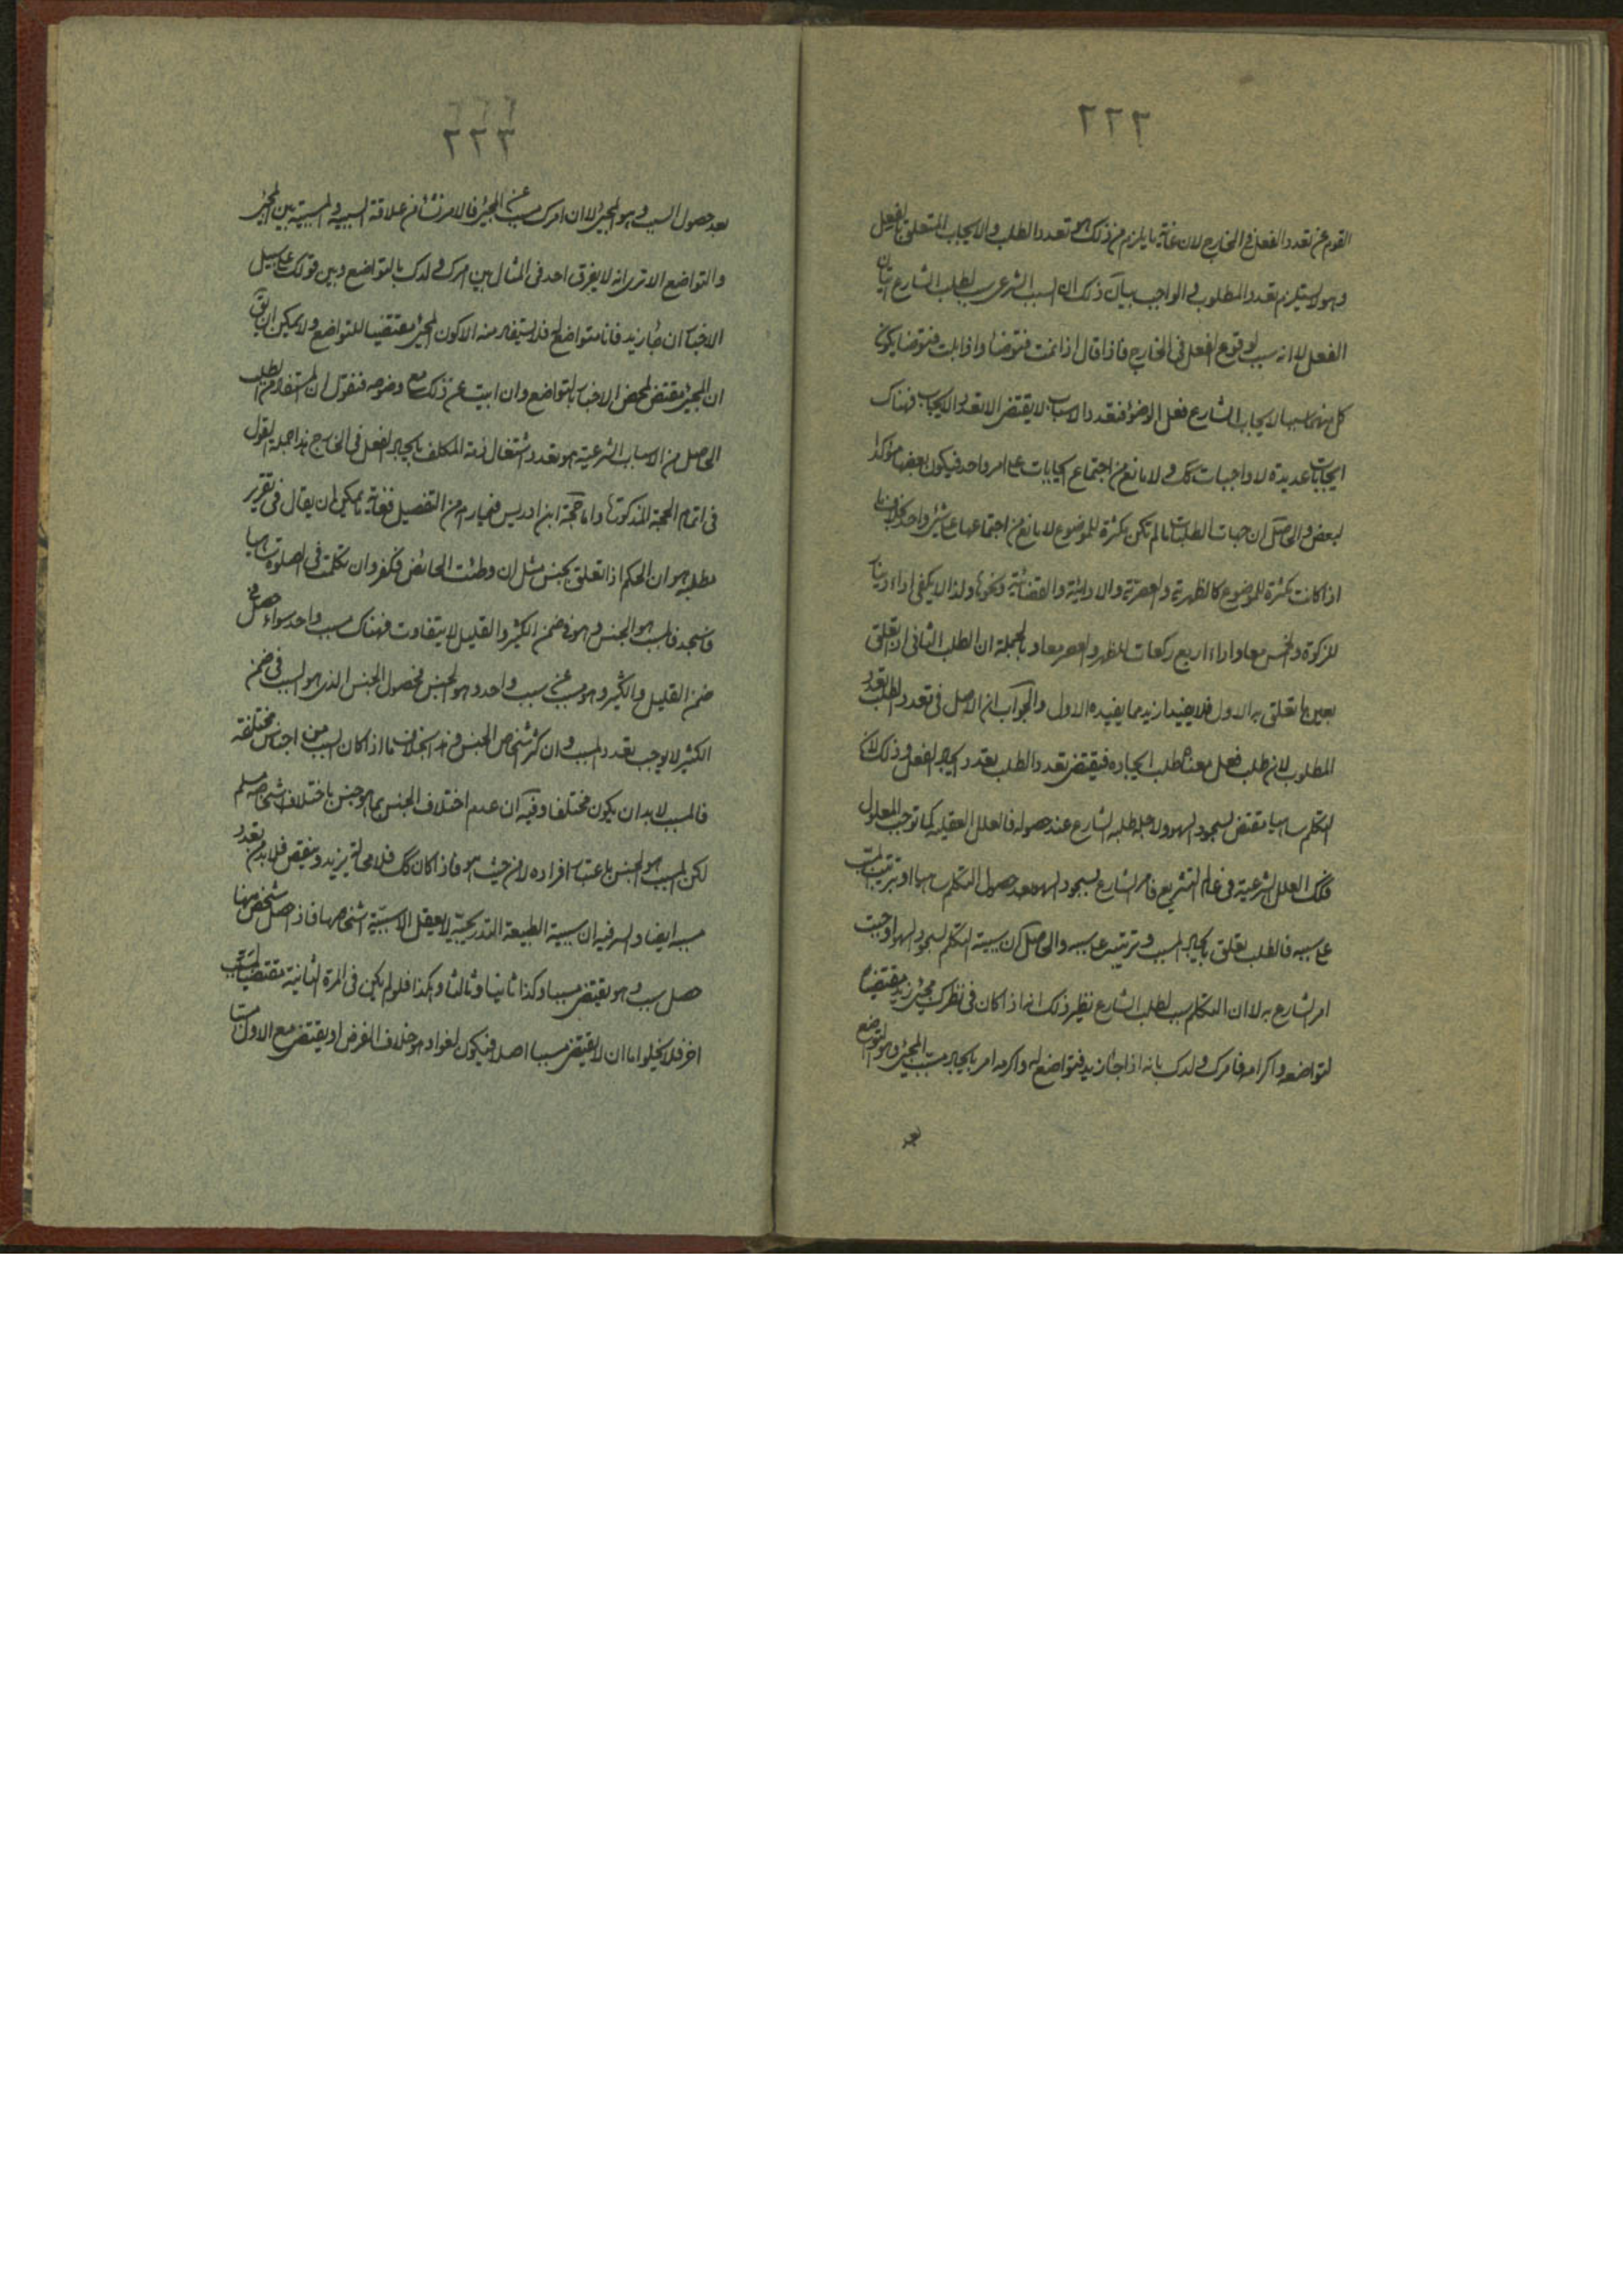 ٢٢٢
القوم عن تعدد الفعل في الخارج لان غاية ما يلزم من ذلك هو تعدد الطلب والايجاب المتعلق بالفعل
وهو لا يستلزم تعدد المطلوب والواجب بيان ذلك ان السبب الشرعي سبب لطلب الشارع اتيان
الفعل لا انه سبب لوقوع الفعل في الخارج فاذا قال اذا نمت فتوضأ واذا بلت فتوضأ يكون
كل منهما سببا لايجاب الشارع فعل الوضوء فتعدد الاسباب لا يقتضي الا تعدد الايجاب فهناك
ايجابات عديدة لا واجبات كك ولا مانع من اجتماع ايجابات على امر واحد فيكون بعضها مؤكدا
لبعض والحاصل ان جهات الطلبات ما لم تكن مكثرة للموضوع لا مانع من اجتماعها على شيء واحد بخلاف ما
اذا كانت مكثرة للموضوع كالظهرية والعصرية والادائية والقضائية ونحوها ولذا لا يكفي اداء دينار
للزكوة والخمس معا واداء اربع ركعات للظهر والعصر معا وبالجملة ان الطلب الثاني ان تعلق
بعين ما تعلق به الاول فلا يفيد ازيد مما يفيده الاول والجواب ان الاصل في تعدد الطلب تعدد
المطلوب لان طلب فعل معناه طلب ايجاده فيقتضي تعدد الطلب تعدد ايجاد الفعل وذلك لان
التكلم ساهيا مقتض لسجود السهو ولاجله طلبه الشارع عند حصوله فالعلل العقلية كما توجب المعلول
فكك العلل الشرعية في عالم التشريع فامر الشارع بسجود السهو بعد حصول التكلم ساهيا او ترتيب المسبب
على سببه فالطلب تعلق بايجاد المسبب وترتيبه على سببه والحاصل ان سببية التكلم لسجود السهو اوجبت
امر الشارع به لا ان التكلم سبب لطلب الشارع نظير ذلك انه اذا كان في نظرك مجيء زيد مقتضيا
لتواضعه واكرامه فامرك ولدك بانه اذا جاء زيد فتواضع له واكرمه امر بايجاد مسبب المجيء وهو التواضع
بعد
٢٢٣
بعد حصول السبب وهو المجيء لا ان امرك مسبب عن المجيء فالامر نشأ من علاقة السببية والمسببية بين المجيء
والتواضع الا ترى انه لا يفرق احد في المثال بين امرك ولدك بالتواضع وبين قولك على سبيل
الاخبار ان جاء زيد فانا متواضع له فلا يستفاد منه الا كون المجيء مقتضيا للتواضع ولا يمكن ان يق
ان المجيء مقتض لمحض الاخبار بالتواضع وان ابيت عن ذلك مع وضوحه فنقول ان المستفاد من الطلب
الحاصل من الاسباب الشرعية هو تعدد اشتغال ذمة المكلف بايجاد الفعل في الخارج هذا جملة القول
في اتمام الحجة المذكورة واما حجة ابن ادريس فيما رامه من التفصيل فغاية ما يمكن ان يقال في تقرير
مطلبه هو ان الحكم اذا تعلق بجنس مثل ان وطئت الحائض فكفر وان تكلمت في الصلوة ساهيا
فاسجد فالسبب هو الجنس وهو في ضمن الكثير والقليل لا يتفاوت فهناك سبب واحد سواء حصل في
ضمن القليل والكثير وهو مسبب عن سبب واحد وهو الجنس فحصول الجنس الذي هو السبب في ضمن
الكثير لا يوجب تعدد المسبب وان كثر اشخاص الجنس وهذا بخلاف ما اذا كان السبب من اجناس مختلفة
فالمسبب لابد ان يكون مختلفا وفيه ان عدم اختلاف الجنس بما هو جنس باختلاف اشخاصه مسلم
لكن السبب هو الجنس باعتبار افراده لا من حيث هو فاذا كان كك فلا محالة يزيد وينقص فلا بد من تعدد
مسببه ايضا والسر فيه ان سببية الطبيعة التدريجية لا يعقل الا بسببية اشخاصها فاذا حصل شخص منها
حصل سبب وهو يقتضي مسببا وكذا ثانيا وثالثا وهكذا فلو لم يكن في المرة الثانية مقتضيا لمسبب
اخر فلا يخلو اما ان لا يقتضي مسببا اصلا فيكون لغوا وهو خلاف الفرض او يقتضي مع الاول مسببا